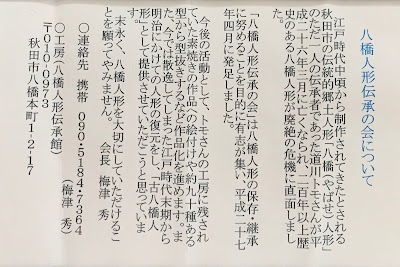 八橋人形伝承の会について
江戸時代中頃から制作されてきたとされる
秋田市の伝統的郷土人形「八橋（やばせ）人形」
のただ一人の伝承者であった道川トモさんが平
成二十六年三月に亡くなられ、二百年以上歴
史のある八橋人形が廃絶の危機に直面しまし
た。
「八橋人形伝承の会」は八橋人形の保存・継承
に努めることを目的に有志が集い、平成二十七
年四月に発足しました。
今後の活動として、トモさんの工房に残され
ていた素焼きの作品への絵付けや約九十種ある
型から型抜きするなど作品化を進めます。ま
た、今では散逸してしまった江戸時代末期から
明治にかけての人形の復元をし、「古八橋人
形」として提供させていただこうと思っていま
す。
末永く、八橋人形を大切にしていただけるこ
とを願ってやみません。
会長　梅津　秀
○連絡先　携帯　090-5184-7364
（梅津　秀）
○工房（八橋人形伝承館）
〒010-0973
秋田市八橋本町1-2-17